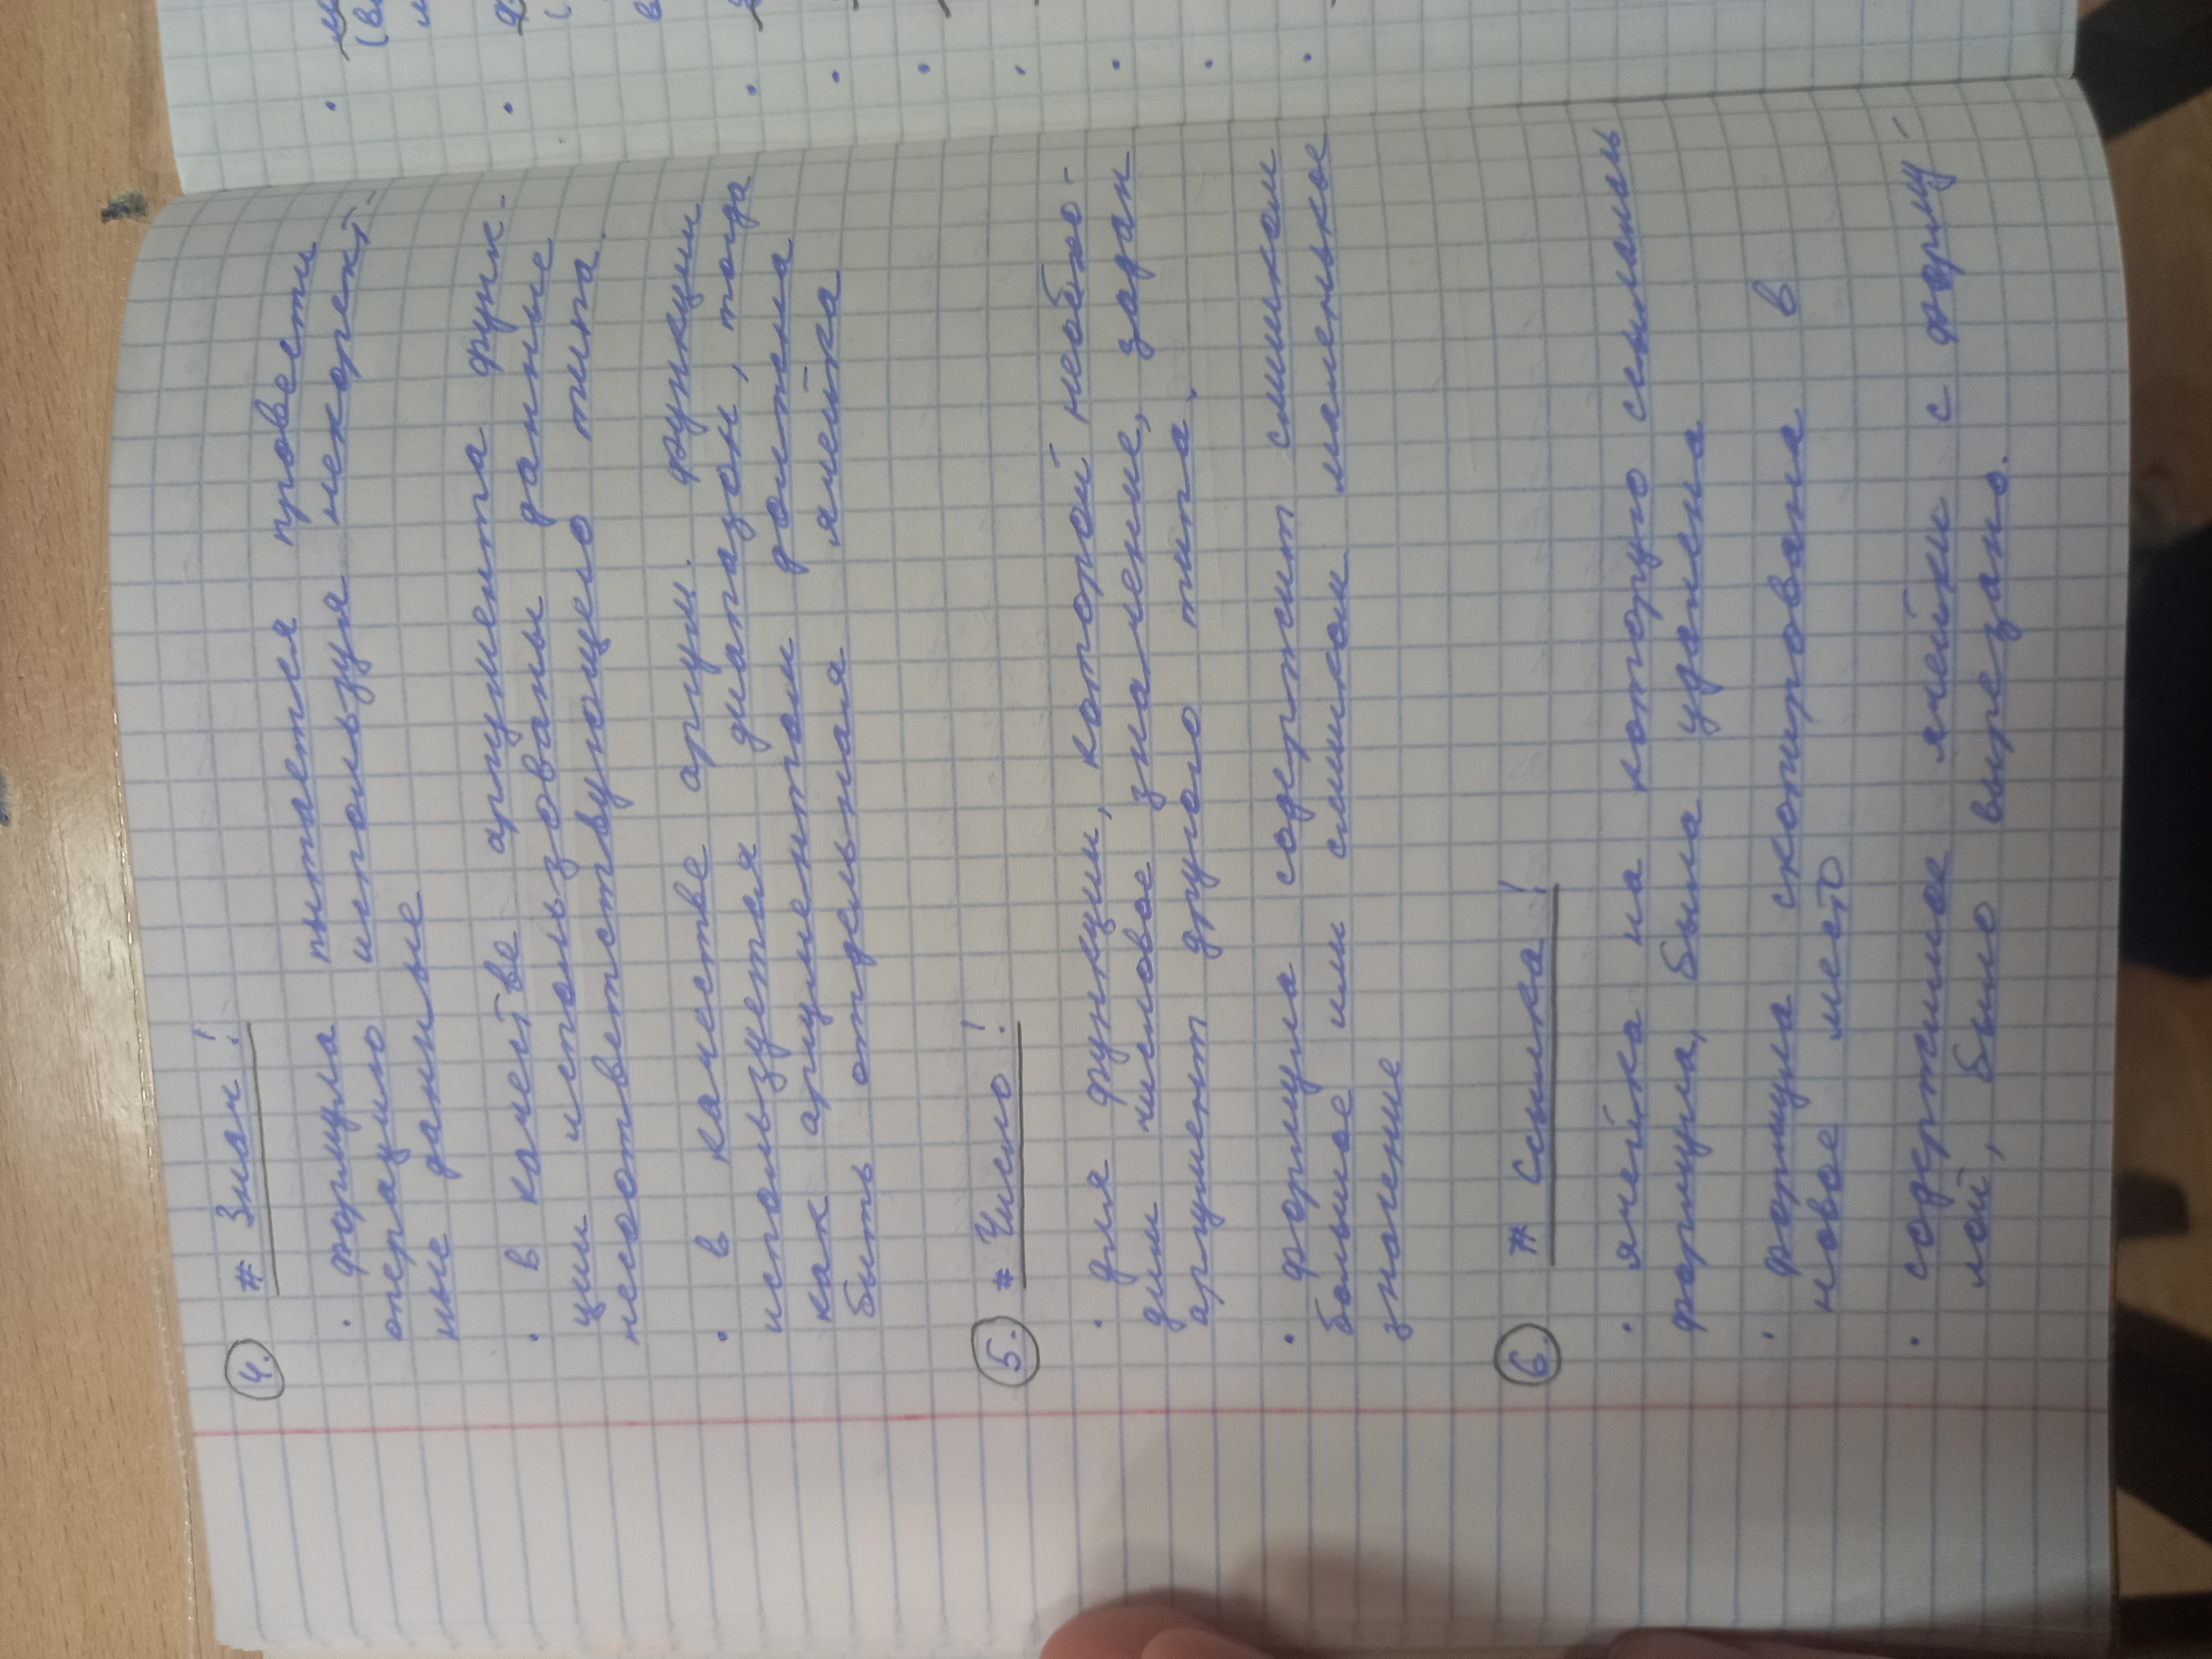 4. # Знач!
· формула пытается провести
операцию используя некорект-
ные данные
· в качестве аргумента функ-
ции использованы данные
несоответствующего типа.
· в качестве аргум. функции
используется диапазон, тогда
как аргументом должна
быть отдельная ячейка
5. # Число!
· для функции, которой необхо-
дим числовое значение, задан
аргумент другого типа.
· формула содержит слишком
большое или слишком маленькое
значение
6. # Ссылка!
· ячейка на которую ссылалась
формула, была удалена
· формула скопирована в
новое место
· содержимое ячейки с форму-
лой, было вырезано.